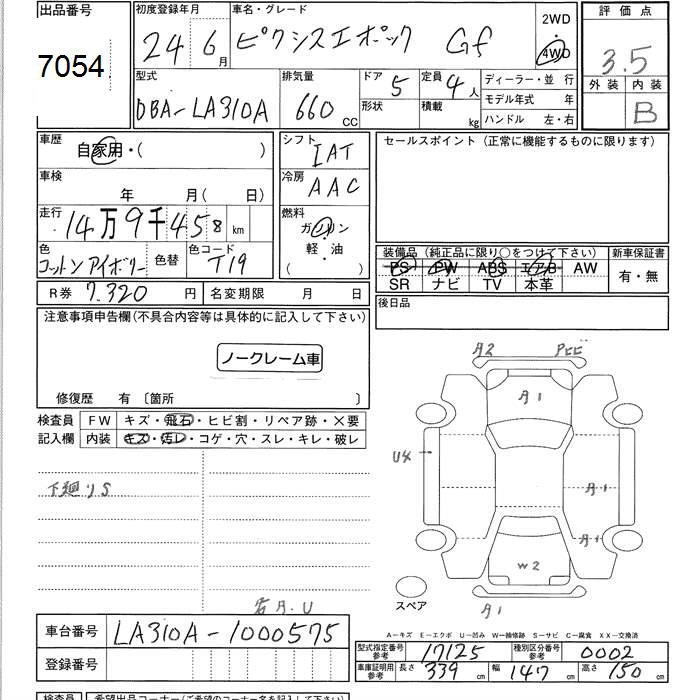 出品番号
7054
初度登録年月
24 6月
車名・グレード
ピクシスエポック Gf
2WD
・
4WD
評価点
3.5
外装 内装
B
型式
DBA-LA310A
排気量
660 CC
ドア 5
形状
定員 4人
積載 kg
ディーラー・並 行
モデル年式 年
ハンドル 左・右
車歴
自家用・( )
車検
年 月( 日)
走行
14万9千458 km
色
コットンアイボリー
色替
色コード
T19
シフト
IAT
冷房
AAC
燃料
ガソリン
軽・油
( )
セールスポイント (正常に機能するものに限ります)
装備品 (純正品に限り○をつけて下さい)
PS PW ABS エアB AW
SR ナビ TV 本革
新車保証書
有・無
後日品
R券 7,320 円
名変期限 月 日
注意事項申告欄(不具合内容等は具体的に記入して下さい)
ノークレーム車
修復歴 有 〔箇所 〕
検査員
記入欄
FW キズ・飛石・ヒビ割・リペア跡・×要
内装 キズ・汚レ・コゲ・穴・スレ・キレ・破レ
下廻りS
A2
A1
U4
A1
A1
W2
A1
スペア
車台番号 LA310A-1000575
登録番号
A-キズ E-エクボ U-凹み W-補修跡 S-サビ C-腐食 XX-交換済
型式指定番号
参考
17125
種別区分番号
参考
0002
車庫証明用
参考
長さ 339 cm 幅 147 cm 高さ 150 cm
検査員
希望出品コーナー(ご希望のコーナー名を記入して下さい)